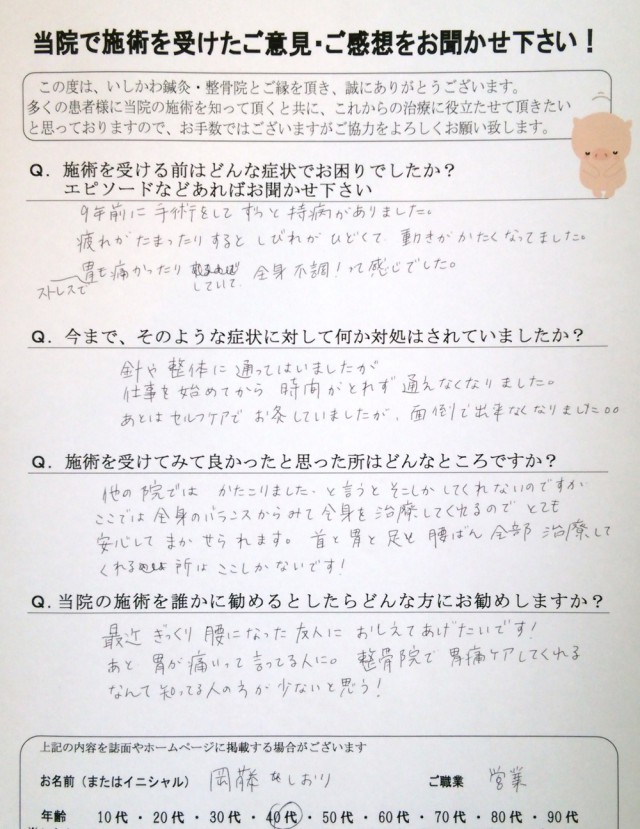 当院で施術を受けたご意見・ご感想をお聞かせ下さい！
この度は、いしかわ鍼灸・整骨院とご縁を頂き、誠にありがとうございます。
多くの患者様に当院の施術を知って頂くと共に、これからの治療に役立たせて頂きたい
と思っておりますので、お手数ではございますがご協力をよろしくお願い致します。
Q．施術を受ける前はどんな症状でお困りでしたか？
エピソードなどあればお聞かせ下さい
9年前に手術をしてずっと持病がありました。
疲れがたまったりするとしびれがひどくて、動きがかたくなってました。
胃も痛かったり していて 全身不調！って感じでした。
ストレスで
Q．今まで、そのような症状に対して何か対処はされていましたか？
針や整体に通ってはいましたが
仕事を始めてから時間がとれず通えなくなりました。
あとはセルフケアでお灸していましたが、面倒で出来なくなりました。。
Q．施術を受けてみて良かったと思った所はどんなところですか？
他の院ではかたこりました、と言うとそこしかしてくれないのですが
ここでは全身のバランスからみて全身を治療してくれるのでとても
安心してまかせられます。首と胃と足と腰ばん全部治療して
くれる所はここしかないです！
Q．当院の施術を誰かに勧めるとしたらどんな方にお勧めしますか？
最近ぎっくり腰になった友人におしえてあげたいです！
あと胃が痛いって言ってる人に。整骨院で胃痛ケアしてくれる
なんて知ってる人の方が少ないと思う！
上記の内容を誌面やホームページに掲載する場合がございます
お名前（またはイニシャル） 岡藤 しおり ご職業 営業
年齢 10代・20代・30代・40代・50代・60代・70代・80代・90代